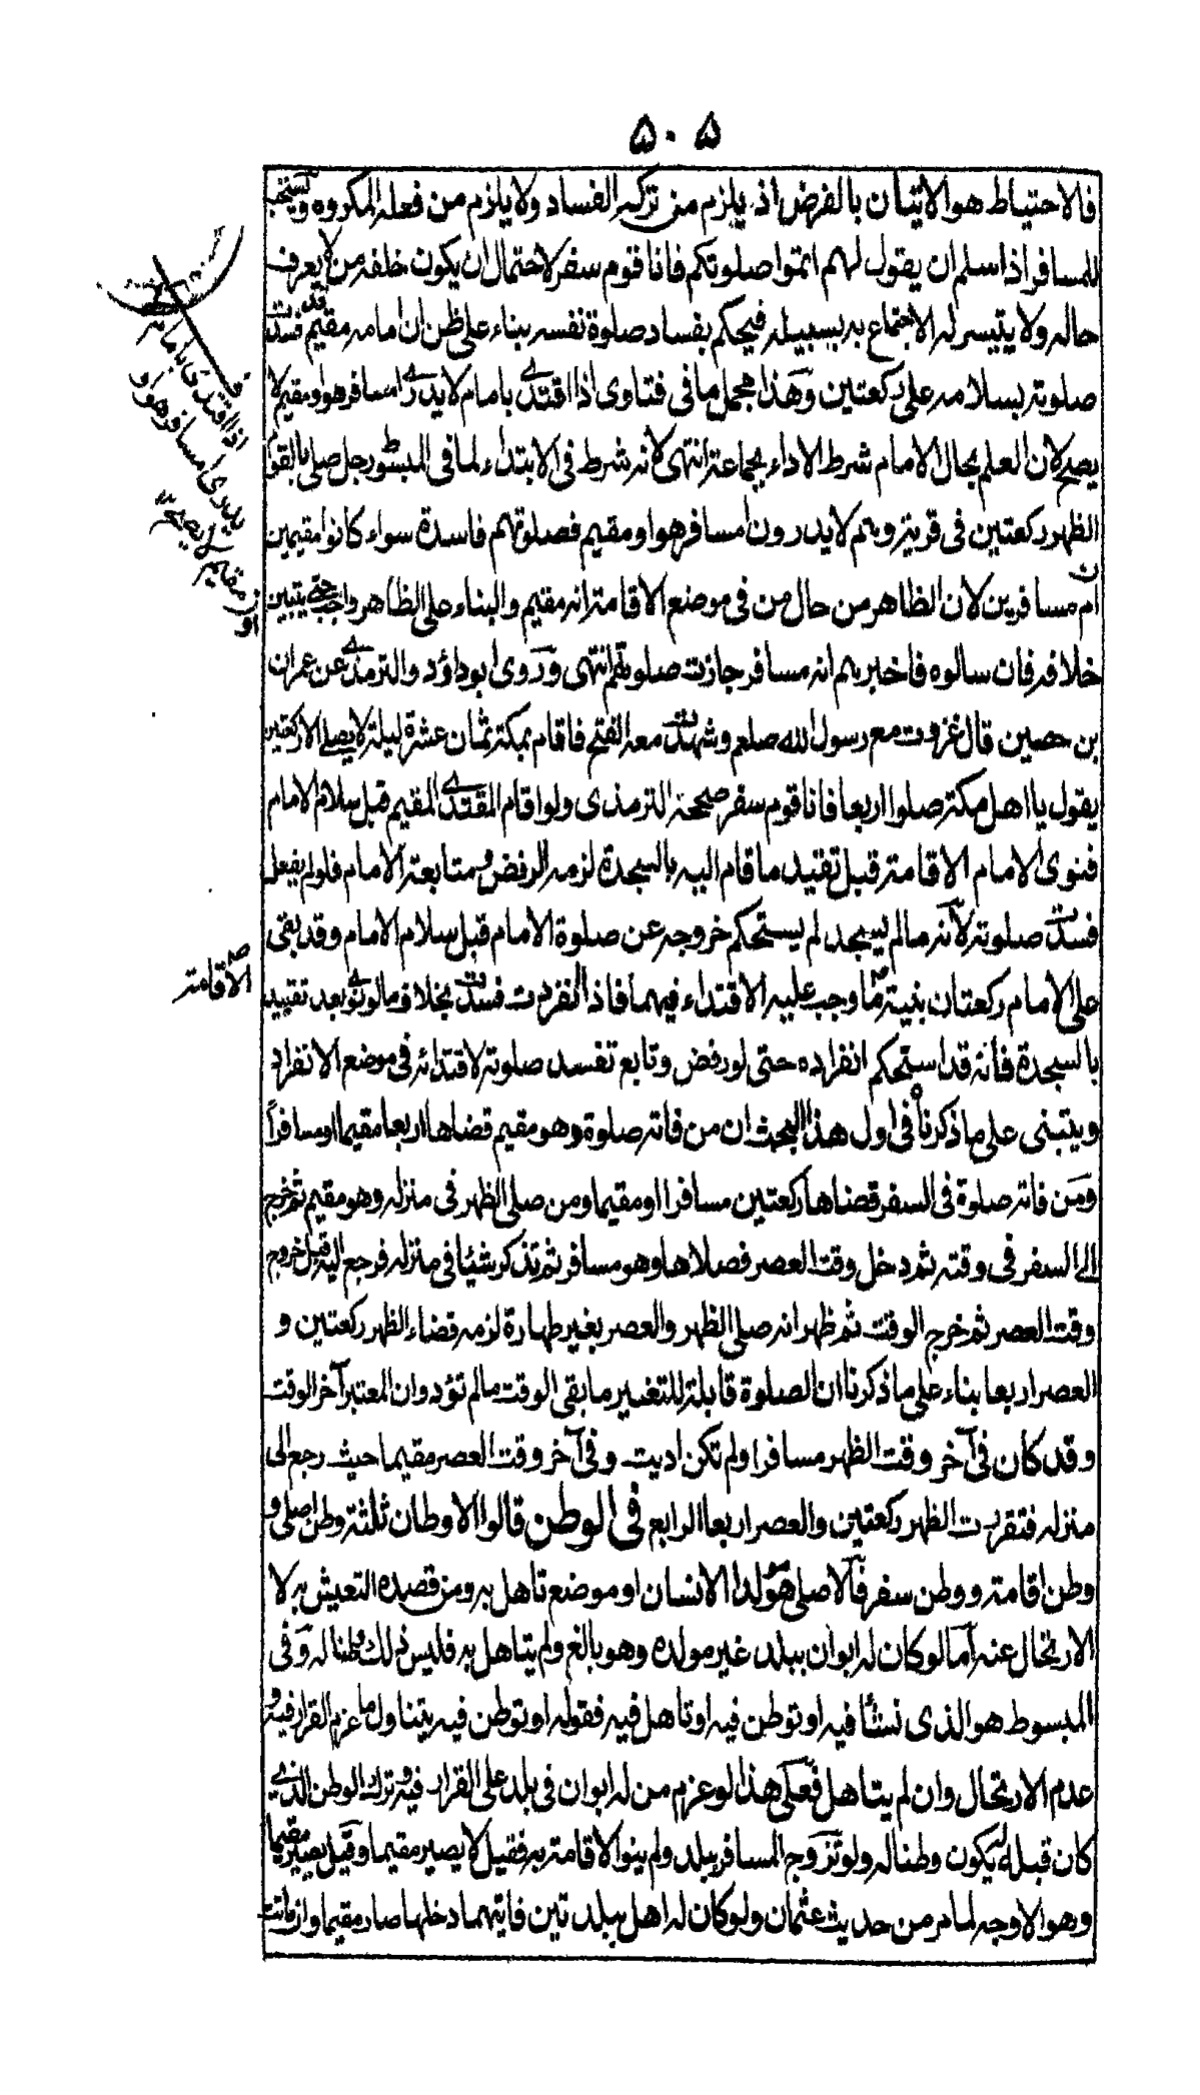 ۵۰۵
فالاحتياط هو الاتيان بالفرض اذ يلزم من تركه الفساد ولا يلزم من فعله المكروه ويستحب
للمسافر اذا سلم ان يقول لهم اتموا صلوتكم فانا قوم سفر لاحتمال ان يكون خلفه من لا يعرف
حاله ولا يتيسر له الاجتماع به بسبيله فيحكم بفساد صلوة نفسه بناء على ظن ان امامه مقيم قد فسدت
صلوته بسلامه على ركعتين وهذا محمل ما فى فتاوى اذا اقتدى بامام لا يدرى امسافر هو او مقيم لا
يصح لان العلم بحال الامام شرط الاداء بجماعة انتهى لا انه شرط فى الابتداء لما فى المبسوط رجل صلى بالقوم
الظهر ركعتين فى قرية وهم لا يدرون امسافر هو او مقيم فصلوتهم فاسدة سواء كانوا مقيمين
ام مسافرين لان الظاهر من حال من فى موضع الاقامة انه مقيم والبناء على الظاهر واجب حتى يتبين
خلافه فان سالوه فاخبرهم انه مسافر جازت صلوتهم انتهى وروى ابو داؤد والترمذى عن عمران
بن حصين قال غزوت مع رسول الله صلعم وشهدت معه الفتح فاقام بمكة ثمان عشرة ليلة لا يصلى الا ركعتين
يقول يا اهل مكة صلوا اربعا فانا قوم سفر صححه الترمذى ولو اقام المقتدى المقيم قبل سلام الامام
فنوى الامام الاقامة قبل تقييد ما قام اليه بالسجدة لزمه الرفض ومتابعة الامام فلو لم يفعل
فسدت صلوته لانه مالم يسجد لم يستحكم خروجه عن صلوة الامام قبل سلام الامام وقد بقى
على الامام ركعتان بنية ما وجب عليه الاقتداء فيهما فاذا انفردت فسدت بخلاف ما لو نوى بعد تقييد
بالسجدة فانه قد استحكم انفراده حتى لو رفض وتابع تفسد صلوته لاقتدائه فى موضع الانفراد
ويتبنى على ما ذكرناه فى اول هذا البحث ان من فاته صلوة وهو مقيم قضاها اربعا مقيما او مسافراً
ومن فاته صلوة فى السفر قضاها ركعتين مسافرا او مقيما ومن صلى الظهر فى منزله وهو مقيم ثم خرج
الى السفر فى وقته ثم دخل وقت العصر فصلاها وهو مسافر ثم تذكر شيئا فى منزله فرجع اليه قبل خروج
وقت العصر ثم خرج الوقت ثم ظهر انه صلى الظهر والعصر بغير طهارة لزمه قضاء الظهر ركعتين و
العصر اربعا بناء على ما ذكرنا ان الصلوة قابلة للتغير ما بقى الوقت مالم تؤد وان المعتبر آخر الوقت
وقد كان فى آخر وقت الظهر مسافرا ولم تكن اديت وفى آخر وقت العصر مقيما حيث رجع الى
منزله فتقررت الظهر ركعتين والعصر اربعا الرابع فى الوطن قالوا الاوطان ثلثة وطن اصلى و
وطن اقامة ووطن سفر فالاصلى مولد الانسان او موضع تاهل به ومن قصده التعيش به لا
الارتحال عنه اما لو كان له ابوان ببلد غير مولده وهو بالغ ولم يتاهل به فليس ذلك وطنا له وفى
المبسوط هو الذى نشئا فيه او توطن فيه او تاهل فيه فقوله او توطن فيه يتناول ما عزم القرار فيه و
عدم الارتحال وان لم يتاهل فعلى هذا لو عزم من له ابوان فى بلد على القرار فيه وترك الوطن الذى
كان قبله له يكون وطنا له ولو تزوج المسافر ببلد ولم ينو الاقامة به فقيل لا يصير مقيما وقيل يصير مقيما
وهو الاوجه لما مر من حديث عثمان ولو كان له اهل ببلدتين فايتهما دخلها صار مقيما وان ماتت
اذا اقتدى بامام لا
يدرى امسافر هو او
مقيم لا يصح ۱۲
الاقامة